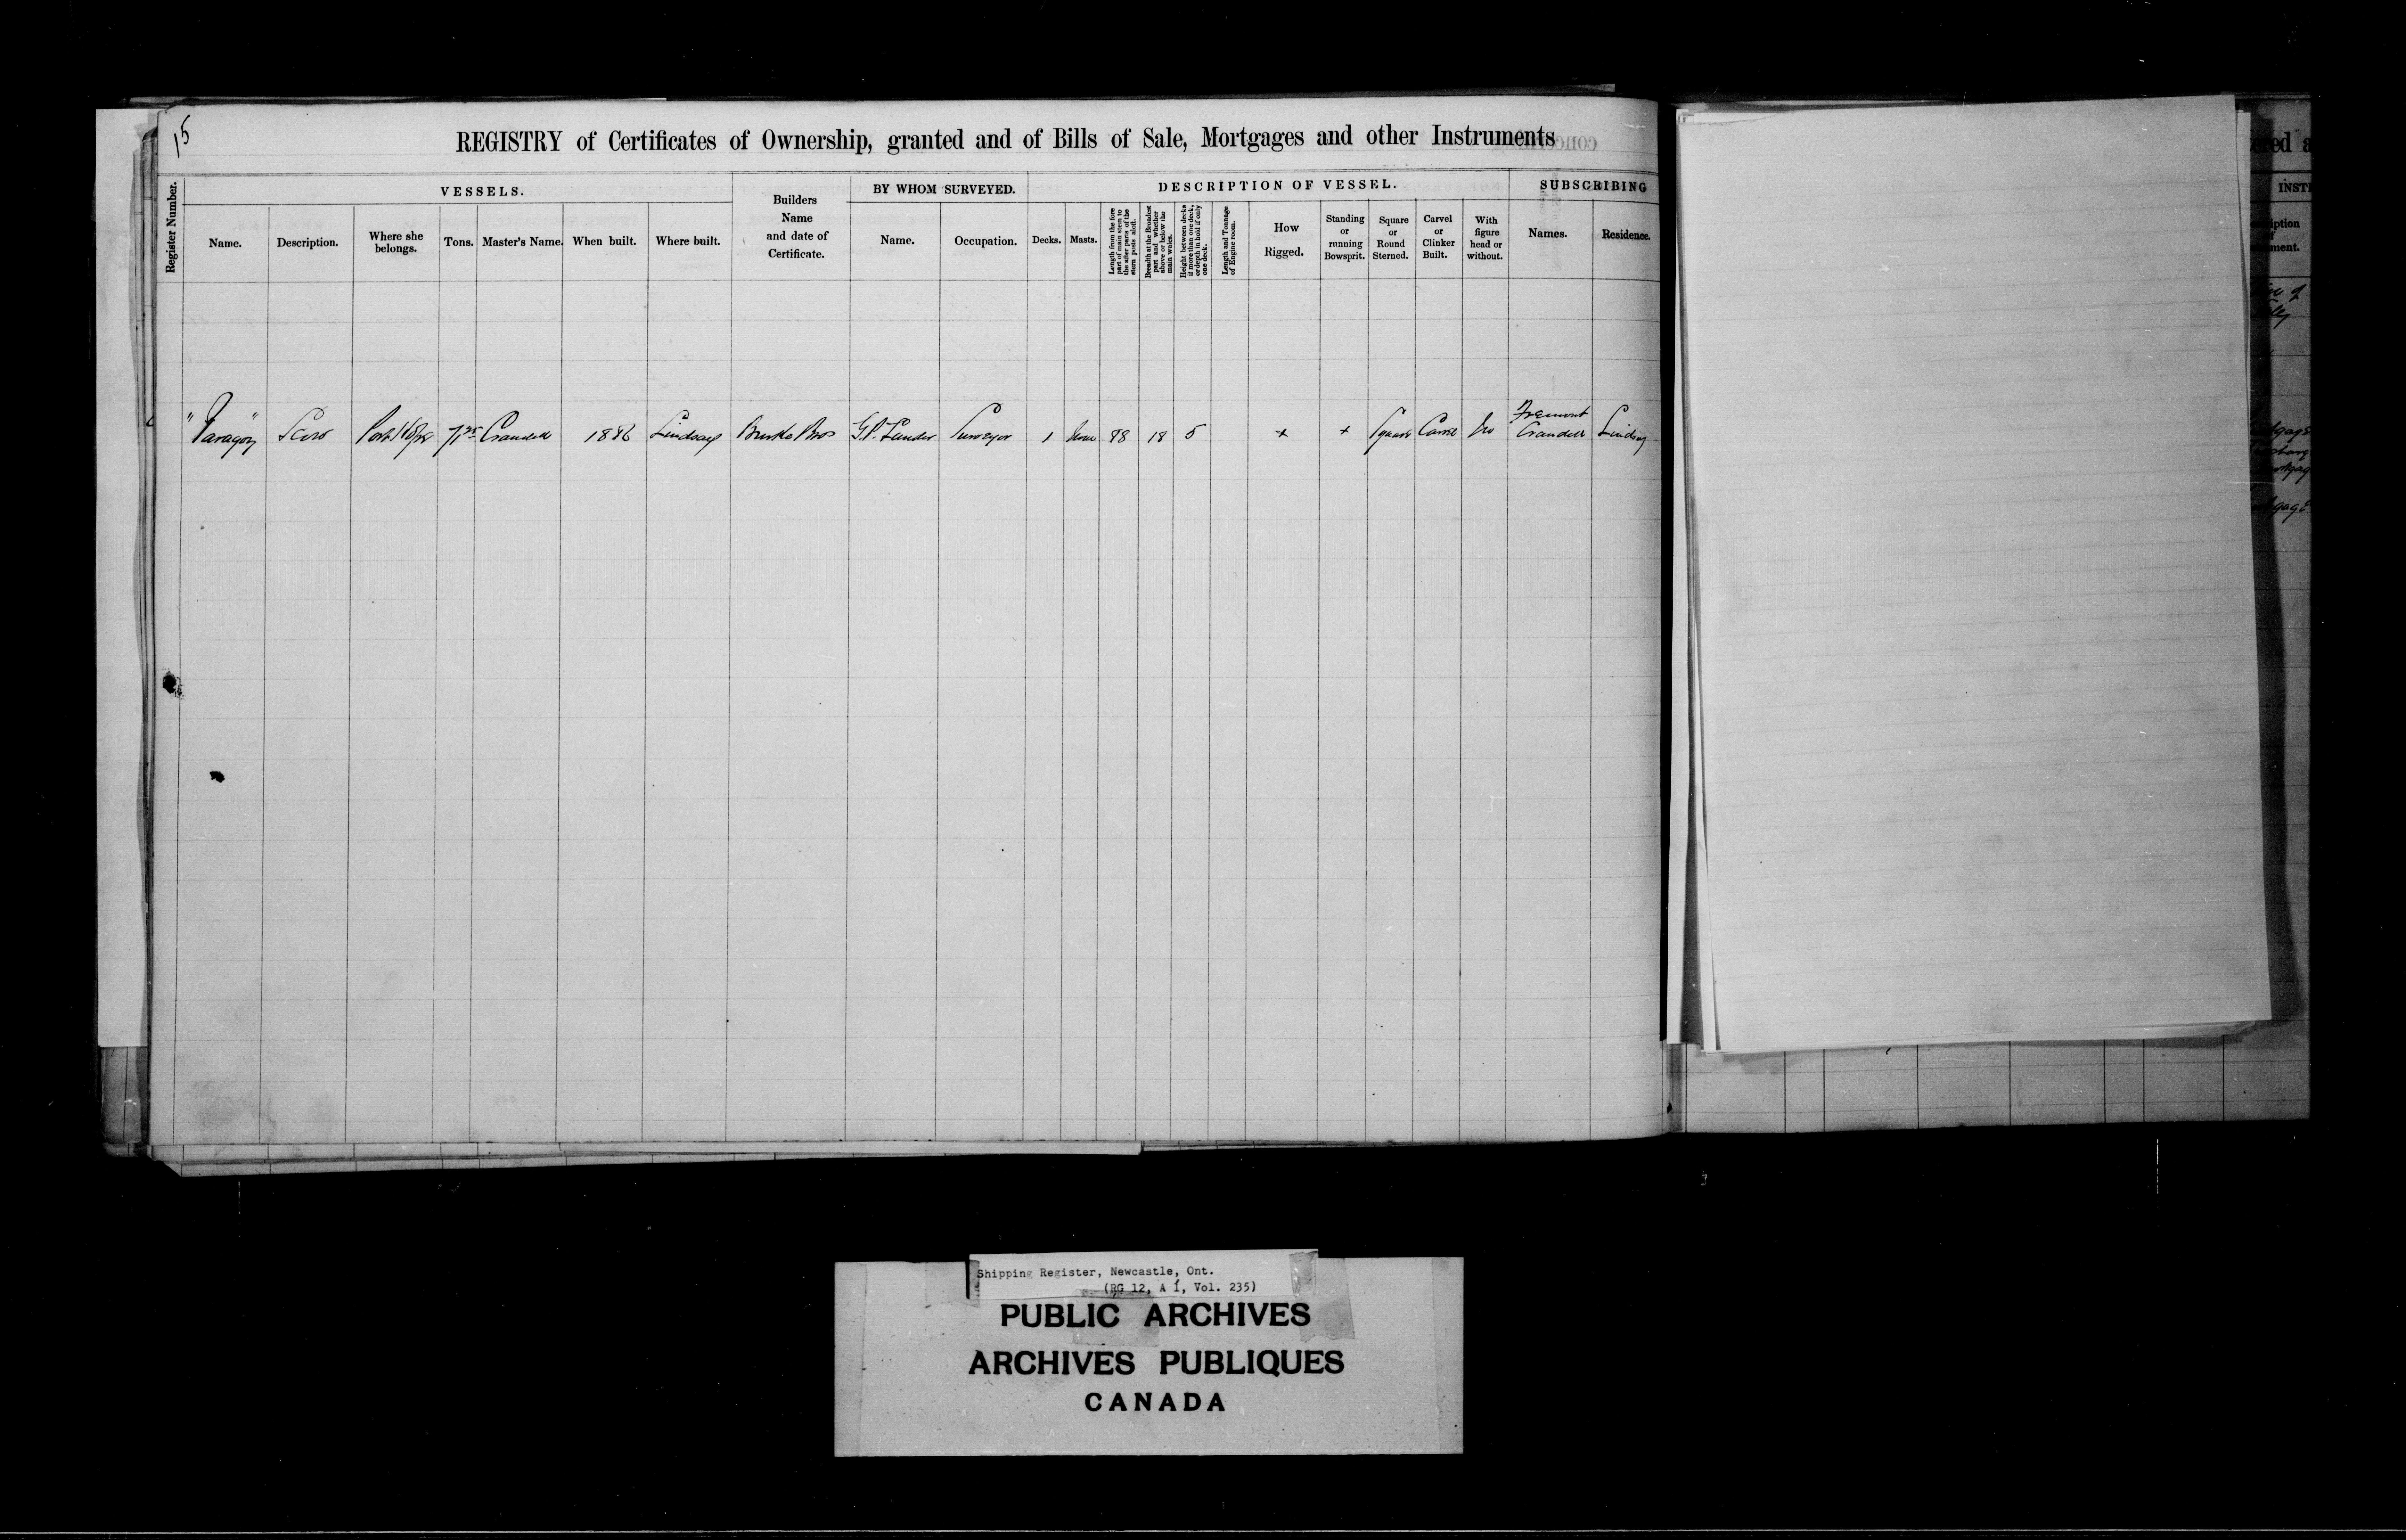 15
REGISTRY of Certificates of Ownership, granted and of Bills of Sale, Mortgages and other Instruments
Register Number.
VESSELS.
Name.
Description.
Where she belongs.
Tons.
Master's Name.
When built.
Where built.
Builders
Name
and date of
Certificate.
BY WHOM SURVEYED.
Name.
Occupation.
DESCRIPTION OF VESSEL.
Decks.
Masts.
Length from the fore
part of main stem to
the after parts of the
stern posts aloft.
Breadth at the Broadest
part and whether
above or below the
main wales.
Height between decks
if more than one deck,
or depth in hold if only
one deck.
Length and Tonnage
of Engine room.
How
Rigged.
Standing
or
running
Bowsprit.
Square
or
Round
Sterned.
Carvel
or
Clinker
Built.
With
figure
head or
without.
SUBSCRIBING
Names.
Residence.
"Paragon" Scow Port Hope Crandell 1886 Lindsay Burke Bros Surveyor 1 None 88 18 5 + + Square Carvel No Fremont
Crandell Lindsay
Shipping Register, Newcastle, Ont.
(RG 12, A 1, Vol. 235)
PUBLIC ARCHIVES
ARCHIVES PUBLIQUES
CANADA